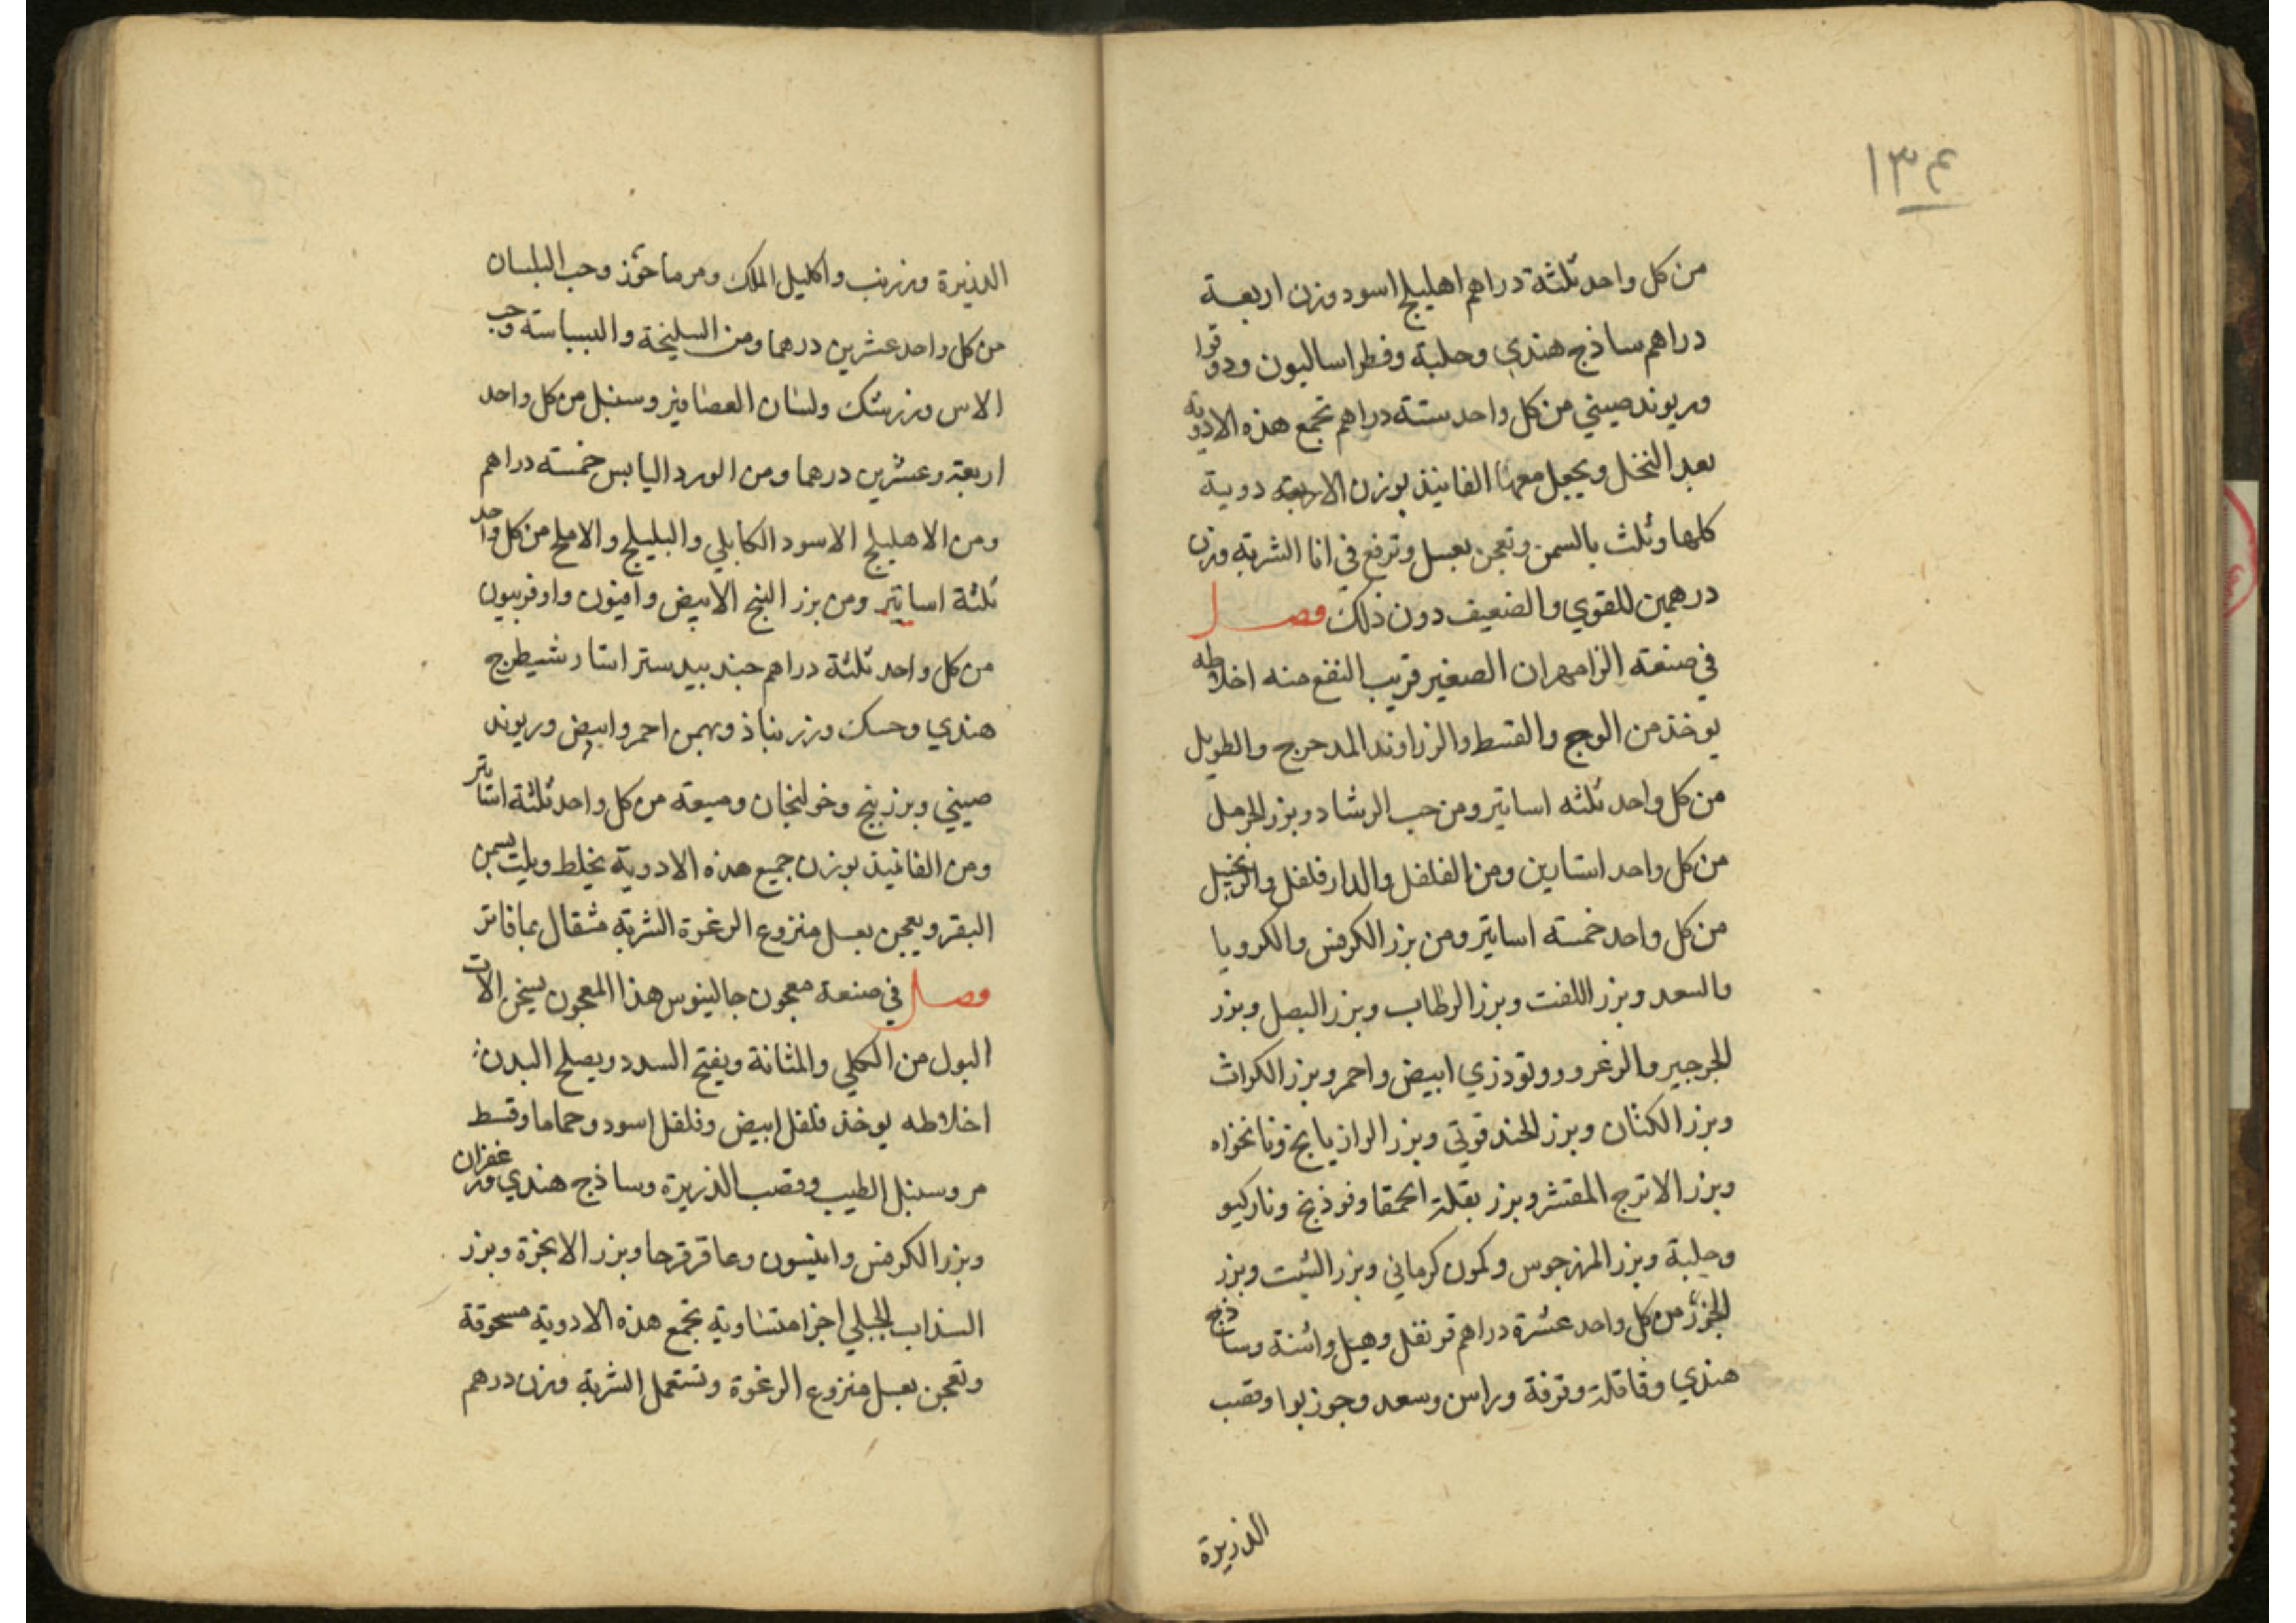 ١٣٤
من كل واحد ثلثة دراهم اهليلج اسود وزن اربعة
دراهم ساذج هندي وحلبة وفطراساليون ودوقوا
وريوند صيني من كل واحد ستة دراهم تجمع هذه الادوية
بعد النخل ويجعل معها الفانيذ بوزن الاربعة دوية
كلها وثلث بالسمن وتعجن بعسل وترفع في انا الشربة وزن
درهمين للقوي والضعيف دون ذلك فصل
في صنعة الزامهران الصغير قريب النفع منه اخلاطه
يوخذ من الوج والقسط والزراوند المدحرج والطويل
من كل واحد ثلثه اساتير ومن حب الرشاد وبزر الحرمل
من كل واحد استارين ومن الفلفل والدارفلفل والزنجبيل
من كل واحد خمسته اساتير ومن بزر الكرفس والكرويا
والسعد وبزر اللفت وبزر الرطاب وبزر البصل وبزر
الجرجير والزعرور وتوذزي ابيض واحمر وبزر الكراث
وبزر الكتان وبزر الحندقوتي وبزر الرازيانج ونانخواه
وبزر الاترج المقشر وبزر بقلة الحمقا وفوذنج وناركيو
وحلبة وبزر المرزجوس وكمون كرماني وبزر الشبت وبزر
الجزر من كل واحد عشرة دراهم قرنفل وهيل واشنة وساذج
هندي وقاقلة وقرفة وراسن وسعد وجوزبوا وقصب
الذريرة
الذريرة وزرنب واكليل الملك ومرماحوز وحب البلسان
من كل واحد عشرين درهما ومن السليخة والبسباسته وحب
الاس وزرشك ولسان العصافير وسنبل من كل واحد
اربعة وعشرين درهما ومن الورد اليابس خمسته دراهم
ومن الاهليلج الاسود الكابلي والبليلج والاملج من كل واحد
ثلثة اساتير ومن بزر البنج الابيض وافيون وافربيون
من كل واحد ثلثة دراهم جندبيدستر استار شيطرج
هندي وحسك وزرنباذ وبهمن احمر وابيض وريوند
صيني وبزر بنج وخولنجان وميعة من كل واحد ثلثة اساتير
ومن الفانيذ بوزن جميع هذه الادوية يخلط ويلت بسمن
البقر ويعجن بعسل منزوع الرغوة الشربة مثقال بما فاتر
فصل في صنعة معجون جالينوس هذا المعجون يسخن الات
البول من الكلي والمثانة ويفتح السدد ويصلح البدن
اخلاطه يوخذ فلفل ابيض وفلفل اسود وحماما وقسط
مر وسنبل الطيب وقصب الذريرة وساذج هندي وزعفران
وبزر الكرفس وانيسون وعاقرقرحا وبزر الانجزة وبزر
السذاب الجبلي اجزا متساوية تجمع هذه الادوية مسحوقة
وتعجن بعسل منزوع الرغوة وتستعمل الشربة وزن درهم